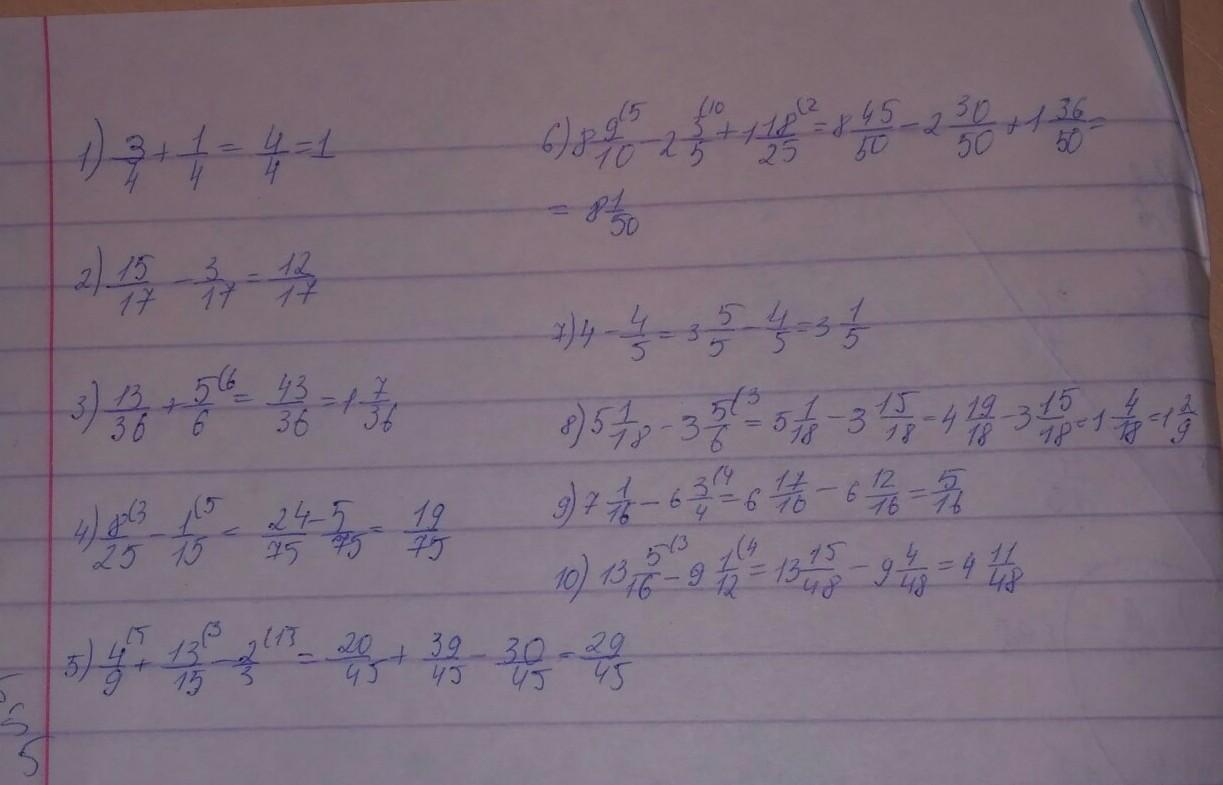 1) 3/4 + 1/4 = 4/4 = 1
2) 15/17 - 3/17 = 12/17
3) 13/36 + 5/6 (6 = 43/36 = 1 7/36
4) 8/25 (3 - 1/15 (5 = 24/75 - 5/75 = 19/75
5) 4/9 (5 + 13/15 (3 - 2/3 (15 = 20/45 + 39/45 - 30/45 = 29/45
6) 8 9/10 (5 - 2 3/5 (10 + 1 18/25 (2 = 8 45/50 - 2 30/50 + 1 36/50 =
= 8 1/50
7) 4 - 4/5 = 3 5/5 - 4/5 = 3 1/5
8) 5 1/18 - 3 5/6 (3 = 5 1/18 - 3 15/18 = 4 19/18 - 3 15/18 = 1 4/18 = 1 2/9
9) 7 1/16 - 6 3/4 (4 = 6 17/16 - 6 12/16 = 5/16
10) 13 5/16 (3 - 9 1/12 (4 = 13 15/48 - 9 4/48 = 4 11/48
5